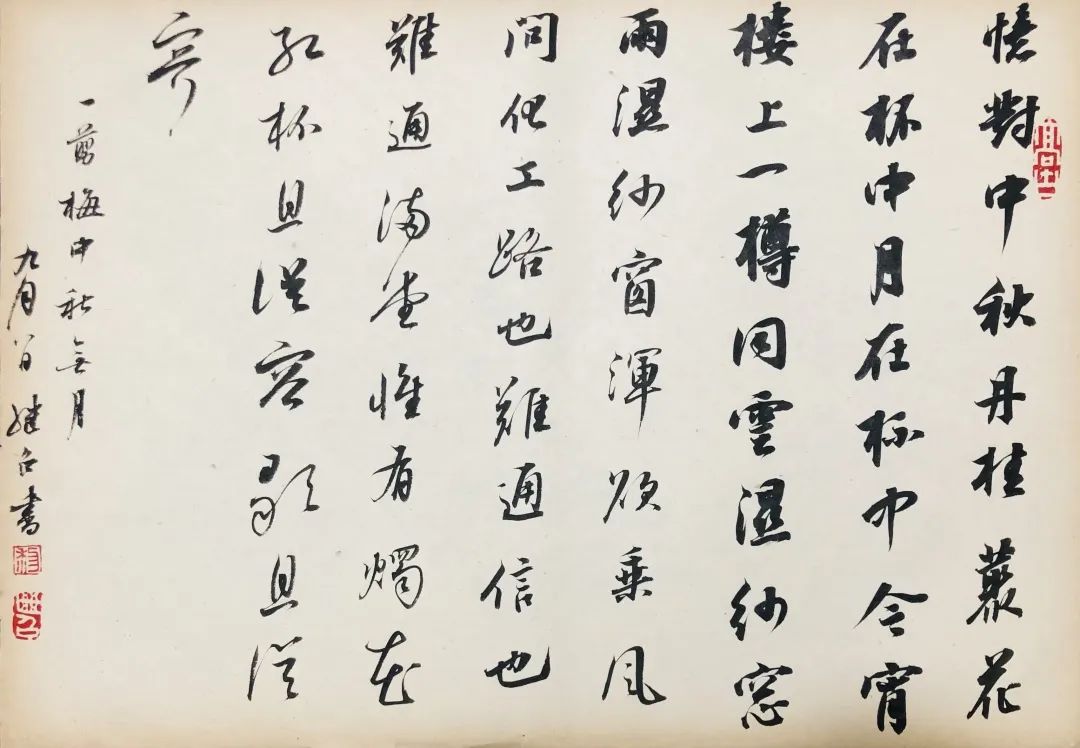 憶對中秋丹桂叢花
在杯中月在杯中今宵
楼上一樽同雲濕紗窓
雨濕紗窗渾欲乘風
問化工路也難通信也
難通滿堂惟有燭花
紅杯且從容歌且從
容
一剪梅中秋無月
九月 書